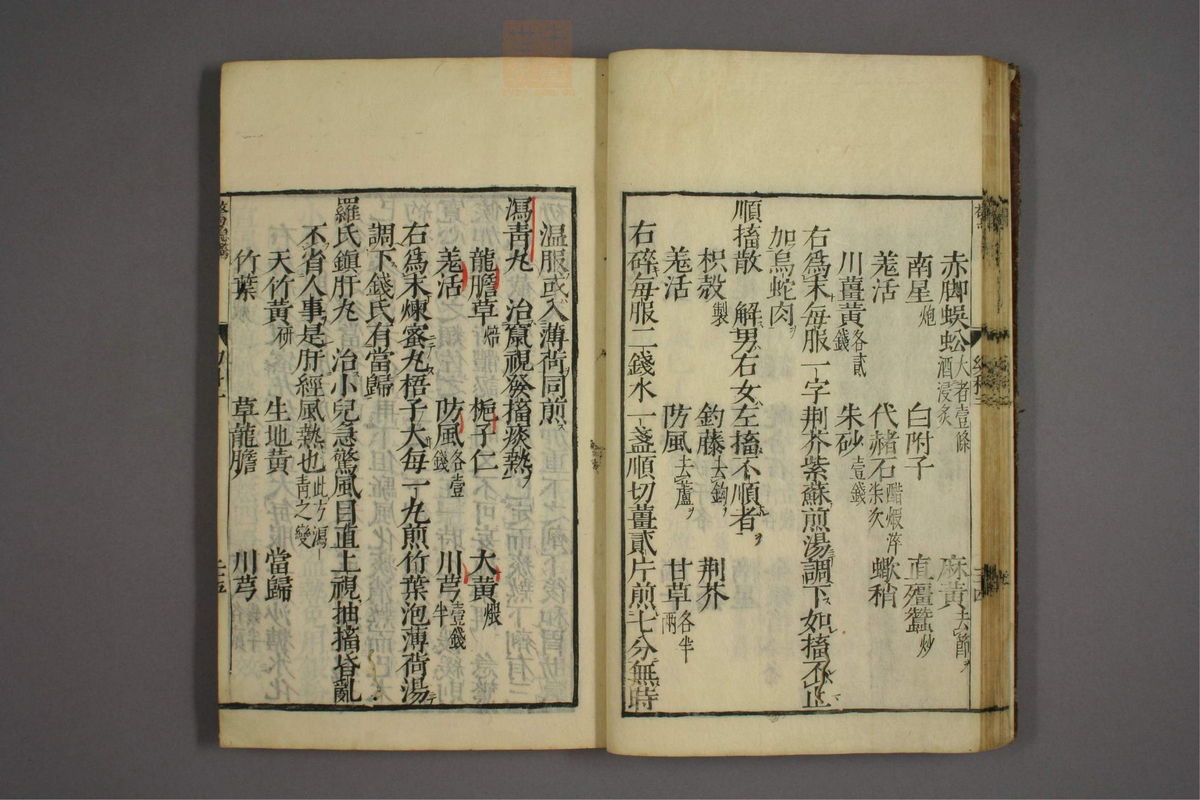 赤脚蜈蚣大者壹條酒浸炙 麻黃去節ヲ
南星炮 白附子 直殭蠶炒
羗活 代赭石醋煅淬柒次 蠍稍
川薑黃各貳錢 朱砂壹錢
右爲末每服一字荆芥紫蘇煎湯調下如搐不止
加烏蛇肉ヲ
順搐散 解男右女左搐不順者ヲ
枳殼製 釣藤去鈎ヲ 荆芥
羗活 防風去蘆ヲ 甘草各半兩
右碎每服二錢水一盞順切薑貳片煎七分無時
溫服或入薄荷同煎
瀉青丸 治竄視發搐痰熱
龍膽草焙 梔子仁 大黃煨
羗活 防風各壹錢 川芎壹錢半
右爲末煉蜜丸梧子大每一丸煎竹葉泡薄荷湯
調下錢氏有當歸
羅氏鎮肝丸 治小兒急驚風目直上視抽搐昏亂
不省人事是肝經風熱也此方瀉青之變
天竹黃研 生地黃 當歸
竹葉 草龍膽 川芎